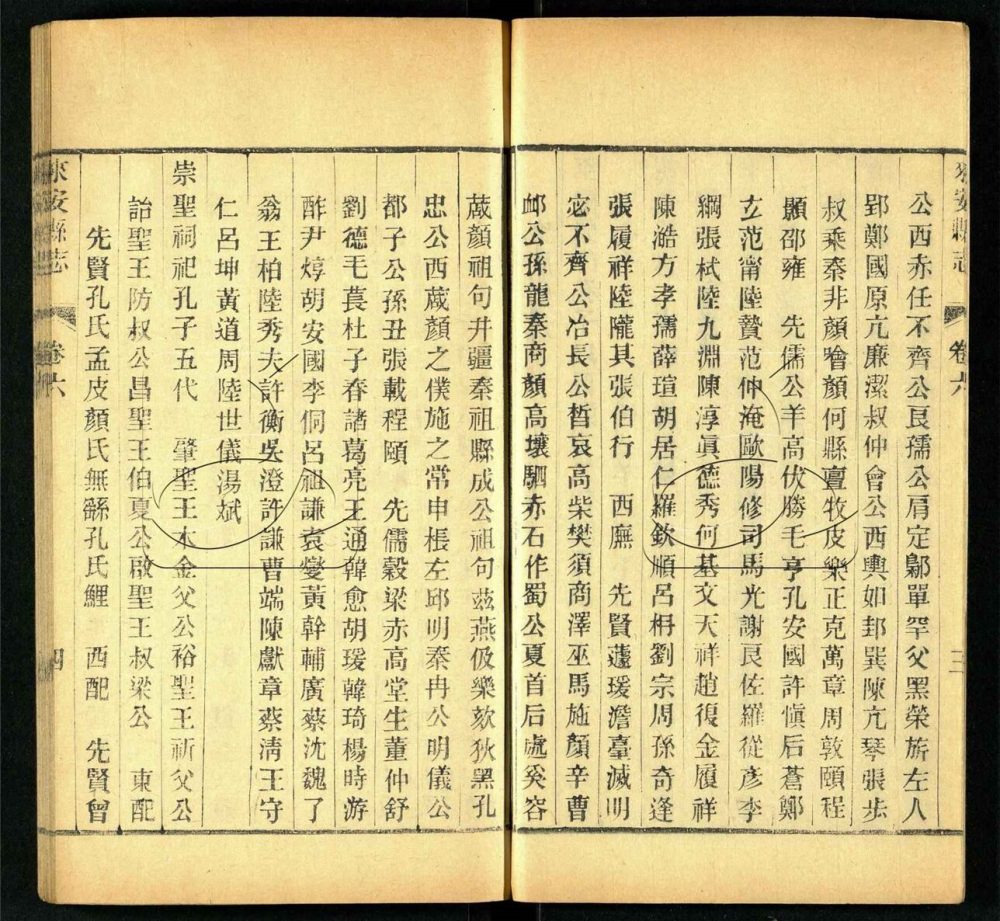 來安縣志 卷六 三
公西赤任不齊公良孺公肩定鄡單罕父黑榮旂左人
郢鄭國原亢廉潔叔仲會公西輿如邽巽陳亢琴張步
叔乘秦非顏噲顏何縣亶牧皮樂正克萬章周敦頤程
顥邵雍 先儒公羊高伏勝毛亨孔安國許慎后蒼鄭
玄范甯陸贄范仲淹歐陽修司馬光謝良佐羅從彥李
綱張栻陸九淵陳淳眞德秀何基文天祥趙復金履祥
陳澔方孝孺薛瑄胡居仁羅欽順呂枏劉宗周孫奇逢
張履祥陸隴其張伯行 西廡 先賢蘧瑗澹臺滅明
宓不齊公冶長公晳哀高柴樊須商澤巫馬施顏辛曹
卹公孫龍秦商顏高壤駟赤石作蜀公夏首后處奚容
蒧顏祖句井疆秦祖縣成公祖句玆燕伋樂欬狄黑孔
忠公西蒧顏之僕施之常申棖左邱明秦冉公明儀公
都子公孫丑張載程頤 先儒穀梁赤高堂生董仲舒
劉德毛萇杜子春諸葛亮王通韓愈胡瑗韓琦楊時游
酢尹焞胡安國李侗呂祖謙袁燮黃幹輔廣蔡沈魏了
翁王柏陸秀夫許衡吳澄許謙曹端陳獻章蔡淸王守
仁呂坤黃道周陸世儀湯斌
崇聖祠祀孔子五代 肇聖王木金父公裕聖王祈父公
詒聖王防叔公昌聖王伯夏公啟聖王叔梁公 東配
先賢孔氏孟皮顏氏無繇孔氏鯉 西配 先賢曾
來安縣志 卷六 四